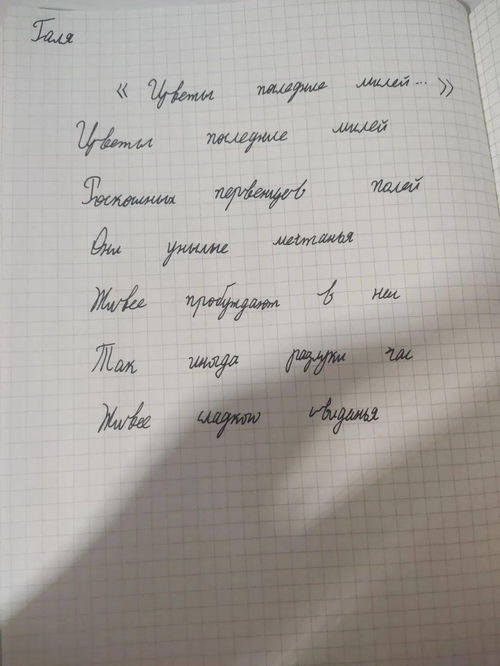 Галя
« Цветы последние милей... »
Цветы последние милей
Роскошных первенцов полей
Они унылые мечтанья
Живее пробуждают в нас
Так иногда разлуки час
Живее сладкого свиданья